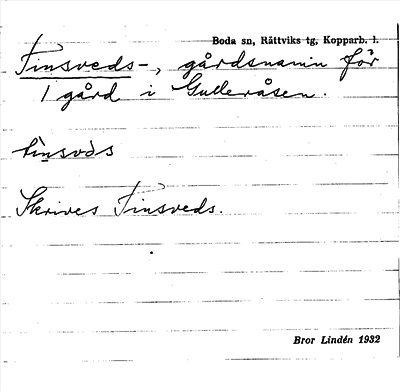 Boda sn, Rättviks tg, Kopparb. l.
Finsveds-, gårdsnamn för
1 gård i Gulleråsen.
fìnsvòs
Skrives Finsveds.
Bror Lindén 1932